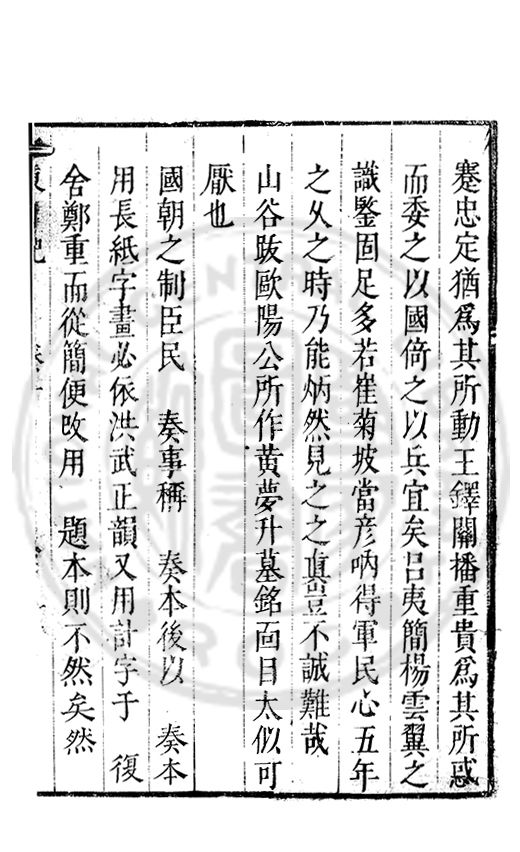 蹇忠定猶為其所動王鐸關播重貴為其所惑
而委之以國倚之以兵宜矣呂夷簡楊雲翼之
識鑒固足多若崔菊坡當彥吶得軍民心五年
之久之時乃能炳然見之之真豈不誠難哉
山谷跋歐陽公所作黄夢升墓銘面目太似可
厭也
國朝之制臣民　奏事稱　奏本後以　奏本
用長紙字畫必依洪武正韻又用計字于　復
舍鄭重而從簡便改用　題本則不然矣然